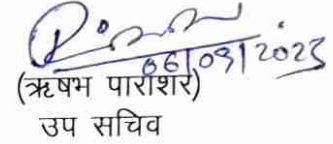 06/09/2023
(ऋषभ पाराशर)
उप सचिव